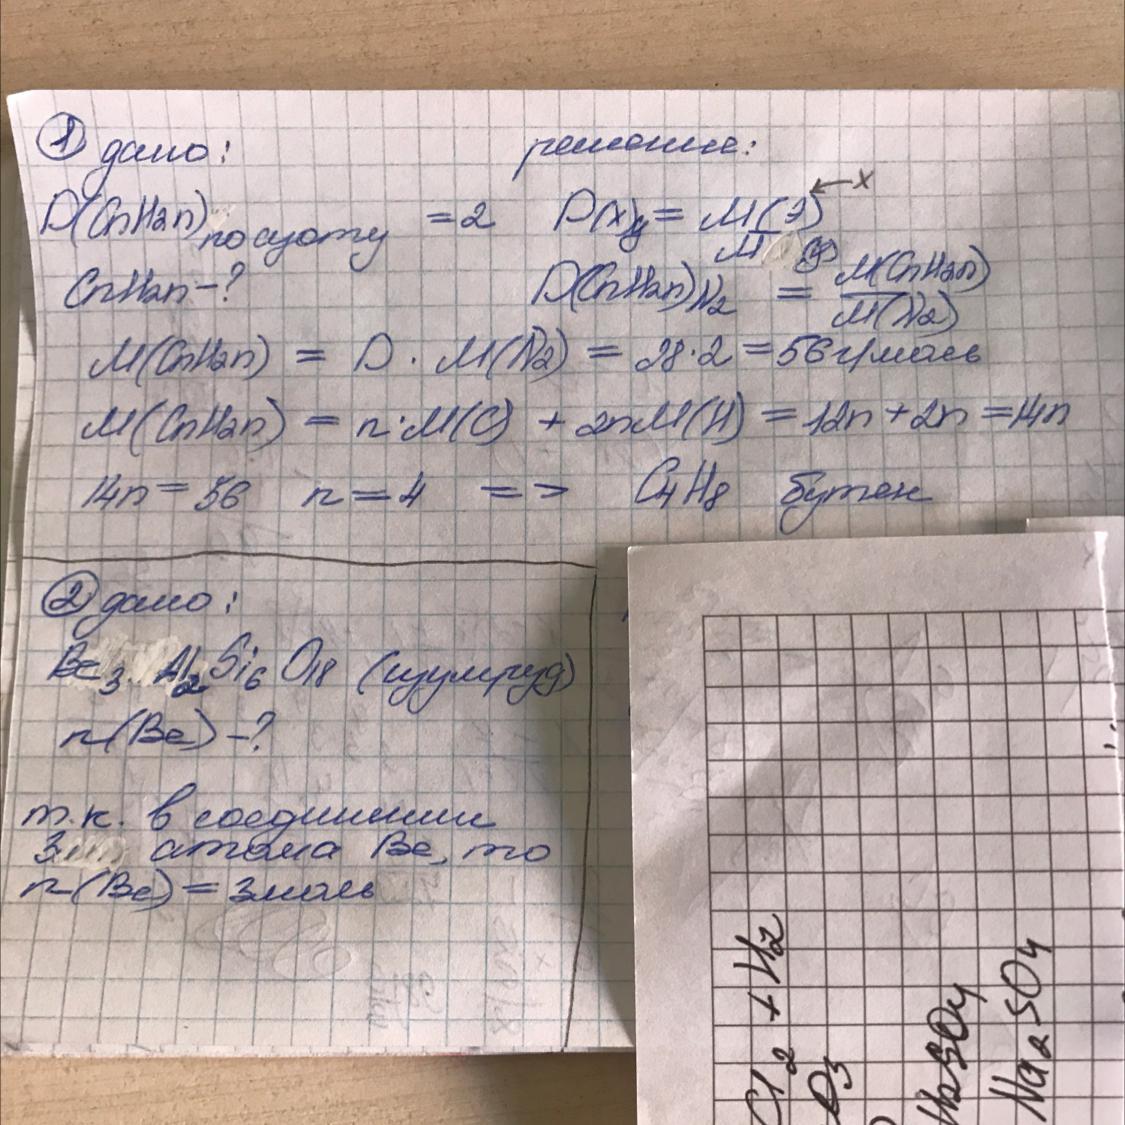 1 дано: решение:
D(CnH2n) по азоту = 2 D(x)y = M(Э) ← x
M y
CnH2n - ? D(CnH2n)N2 = M(CnH2n)
M(N2)
M(CnH2n) = D · M(N2) = 28·2 = 56 г/моль
M(CnH2n) = n·M(C) + 2nM(H) = 12n + 2n = 14n
14n = 56 n = 4 => C4H8 бутен
2 дано:
Be3 Al2 Si6 O18 (изумруд)
n(Be) - ?
т.к. в соединении
3 атома Be, то
n(Be) = 3 моль
Cl2 + H2
O3
H2SO4
Na2SO4